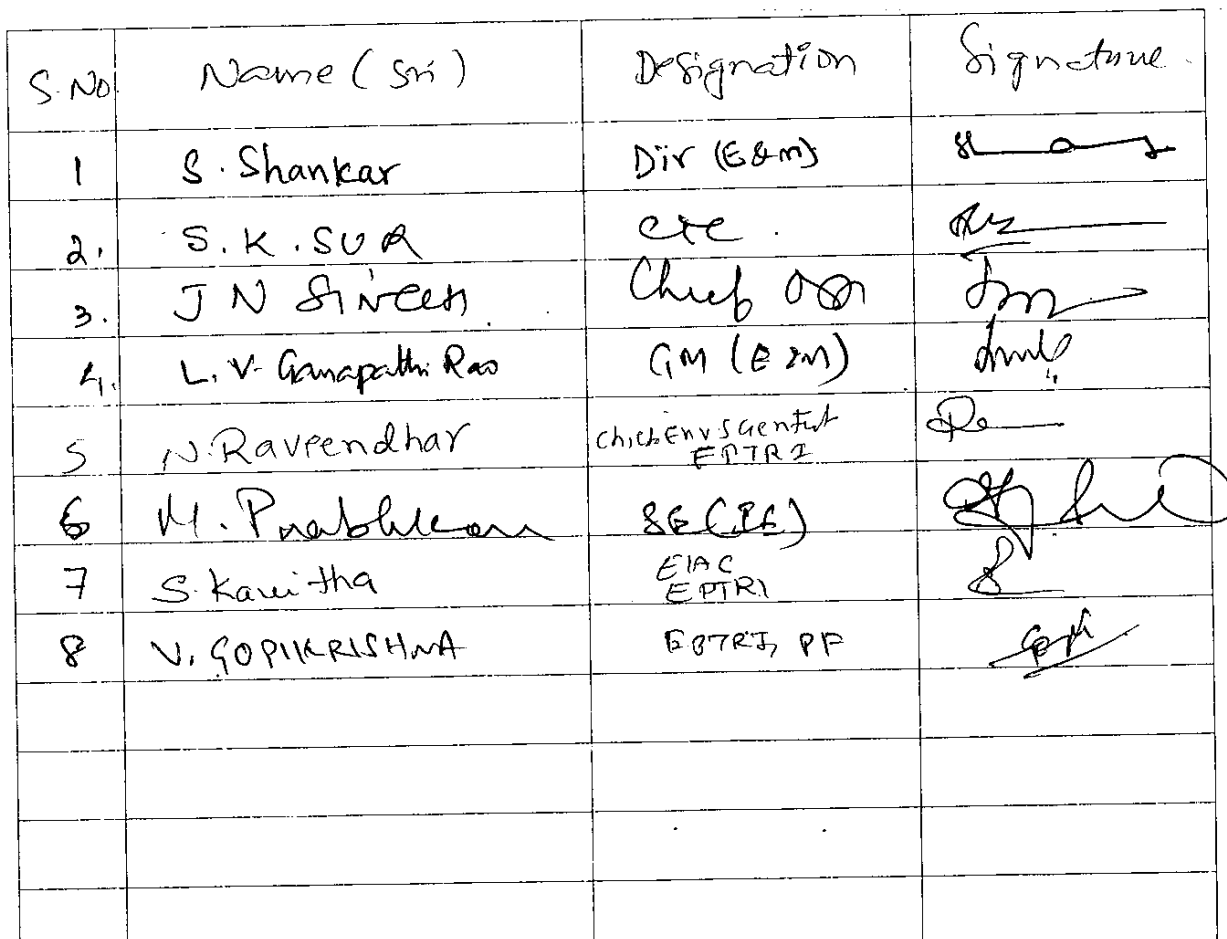 S.No Name (Sri) Designation Signature
1 S. Shankar Dir (E&M)
2. S.K. SUR
3. J N SINGH Chief
4. L. V. Ganapathi Rao GM (E&M)
5 N. Raveendhar Chief Env Scientist
EPTRI
6 M. Prabhkar SE (PE)
7 S. Kavitha EIAC
EPTRI
8 V. GOPIKRISHNA EPTRI, PF